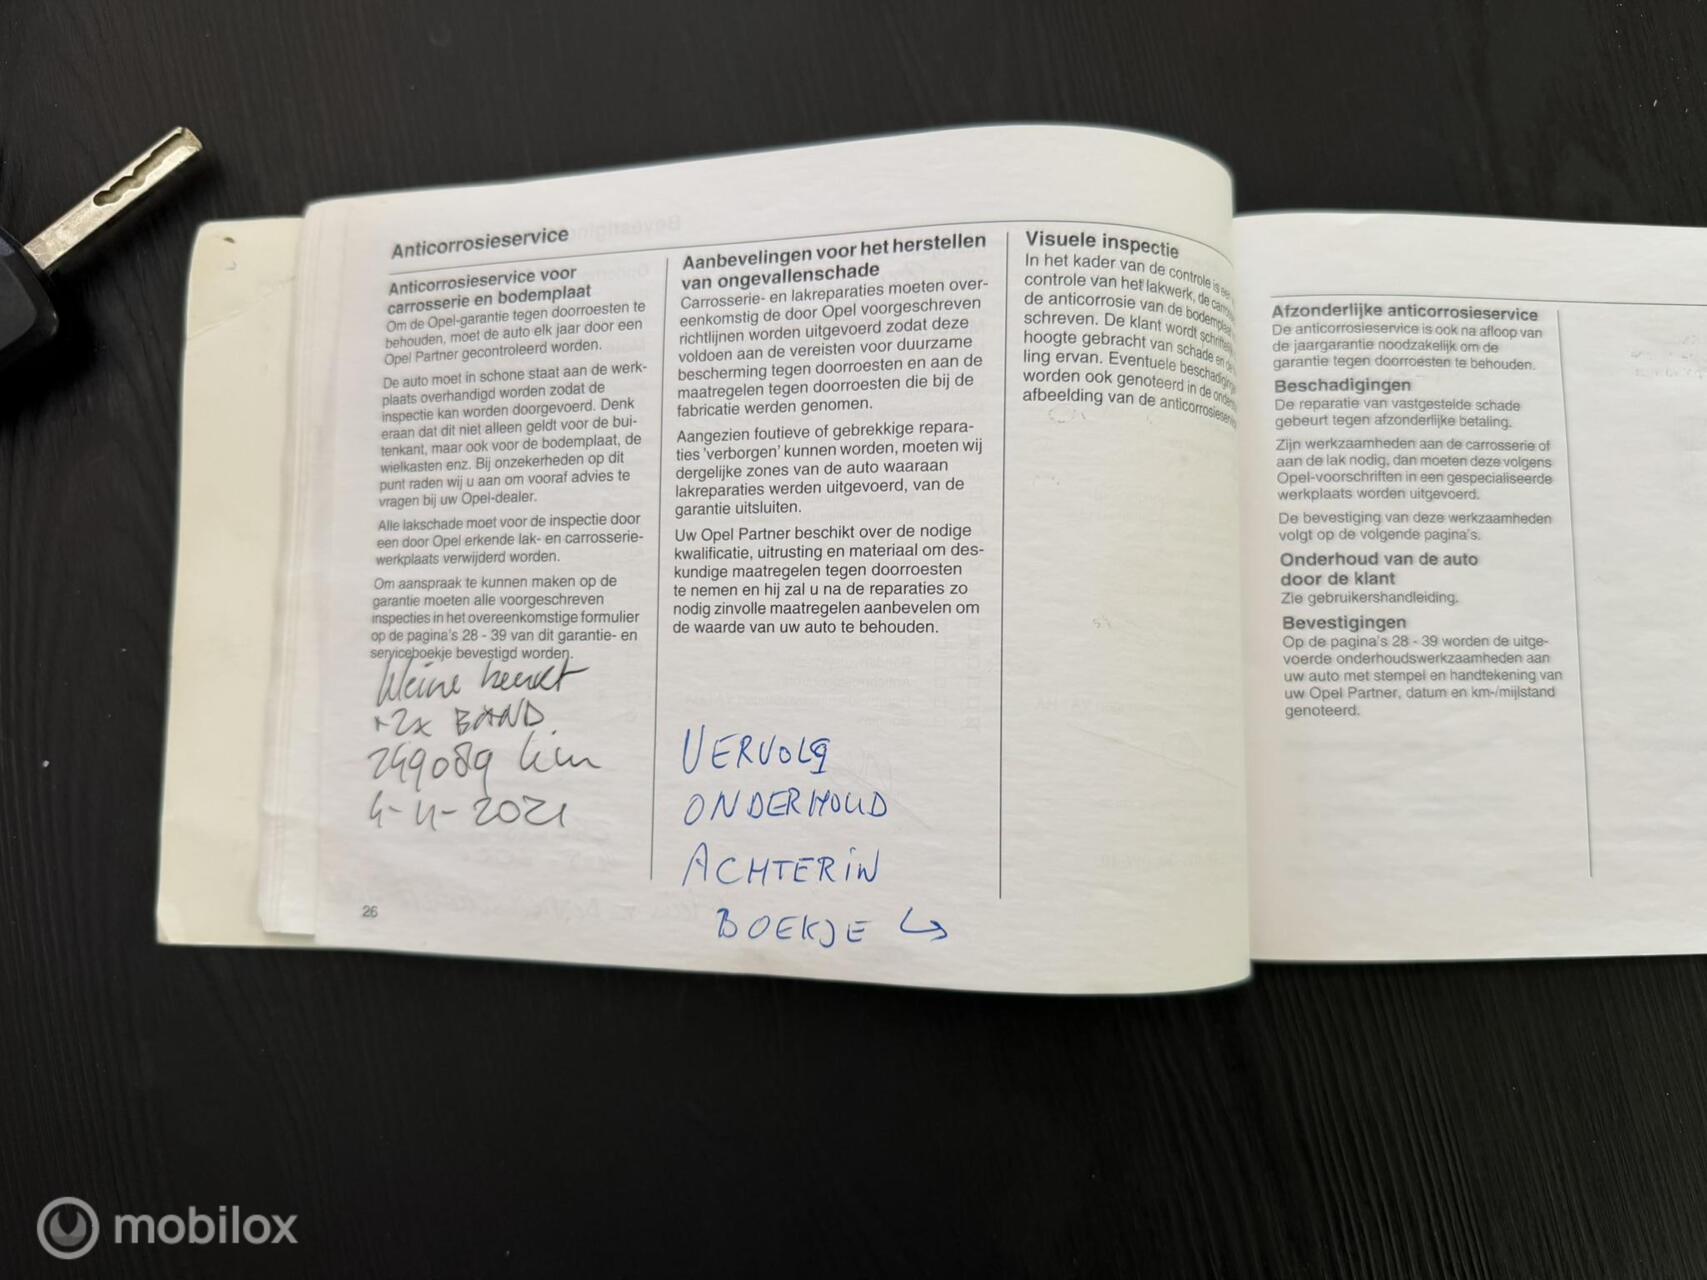 Anticorrosieservice
Anticorrosieservice voor
carrosserie en bodemplaat
Om de Opel-garantie tegen doorroesten te
behouden, moet de auto elk jaar door een
Opel Partner gecontroleerd worden.
De auto moet in schone staat aan de werk-
plaats overhandigd worden zodat de
inspectie kan worden doorgevoerd. Denk
eraan dat dit niet alleen geldt voor de bui-
tenkant, maar ook voor de bodemplaat, de
wielkasten enz. Bij onzekerheden op dit
punt raden wij u aan om vooraf advies te
vragen bij uw Opel-dealer.
Alle lakschade moet voor de inspectie door
een door Opel erkende lak- en carrosserie-
werkplaats verwijderd worden.
Om aanspraak te kunnen maken op de
garantie moeten alle voorgeschreven
inspecties in het overeenkomstige formulier
op de pagina's 28 - 39 van dit garantie- en
serviceboekje bevestigd worden.
kleine beurt
+2x BAND
249089 km
4-11-2021
26
Aanbevelingen voor het herstellen
van ongevallenschade
Carrosserie- en lakreparaties moeten over-
eenkomstig de door Opel voorgeschreven
richtlijnen worden uitgevoerd zodat deze
voldoen aan de vereisten voor duurzame
bescherming tegen doorroesten en aan de
maatregelen tegen doorroesten die bij de
fabricatie werden genomen.
Aangezien foutieve of gebrekkige repara-
ties 'verborgen' kunnen worden, moeten wij
dergelijke zones van de auto waaraan
lakreparaties werden uitgevoerd, van de
garantie uitsluiten.
Uw Opel Partner beschikt over de nodige
kwalificatie, uitrusting en materiaal om des-
kundige maatregelen tegen doorroesten
te nemen en hij zal u na de reparaties zo
nodig zinvolle maatregelen aanbevelen om
de waarde van uw auto te behouden.
VERVOLG
ONDERHOUD
ACHTERIN
BOEKJE
Visuele inspectie
In het kader van de controle is een
controle van het lakwerk, de
de anticorrosie van de
schreven. De klant wordt
hoogte gebracht van schade en de
ling ervan. Eventuele
worden ook genoteerd in de
afbeelding van de
Afzonderlijke anticorrosieservice
De anticorrosieservice is ook na afloop van
de jaargarantie noodzakelijk om de
garantie tegen doorroesten te behouden.
Beschadigingen
De reparatie van vastgestelde schade
gebeurt tegen afzonderlijke betaling.
Zijn werkzaamheden aan de carrosserie of
aan de lak nodig, dan moeten deze volgens
Opel-voorschriften in een gespecialiseerde
werkplaats worden uitgevoerd.
De bevestiging van deze werkzaamheden
volgt op de volgende pagina's.
Onderhoud van de auto
door de klant
Zie gebruikershandleiding.
Bevestigingen
Op de pagina's 28 - 39 worden de uitge-
voerde onderhoudswerkzaamheden aan
uw auto met stempel en handtekening van
uw Opel Partner, datum en km-/mijlstand
genoteerd.
mobilox